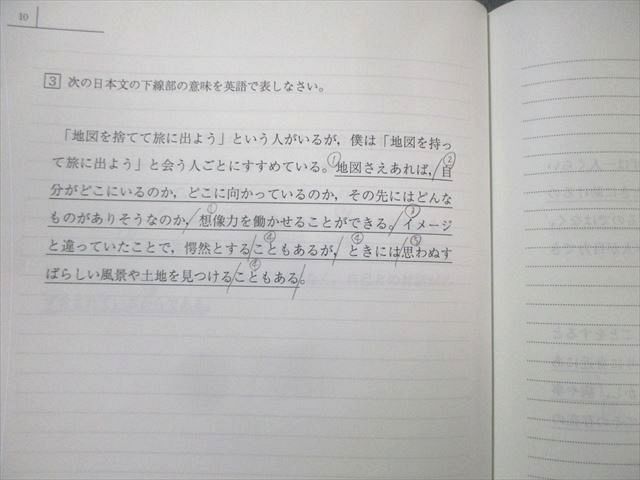 10
3 次の日本文の下線部の意味を英語で表しなさい。
「地図を捨てて旅に出よう」という人がいるが，僕は「地図を持っ
て旅に出よう」と会う人ごとにすすめている。①地図さえあれば，②自
分がどこにいるのか，どこに向かっているのか，その先にはどんな
ものがありそうなのか，①想像力を働かせることができる。③イメージ
と違っていたことで，愕然とする④こともあるが，④ときには⑤思わぬす
ばらしい風景や土地を見つける④こともある。